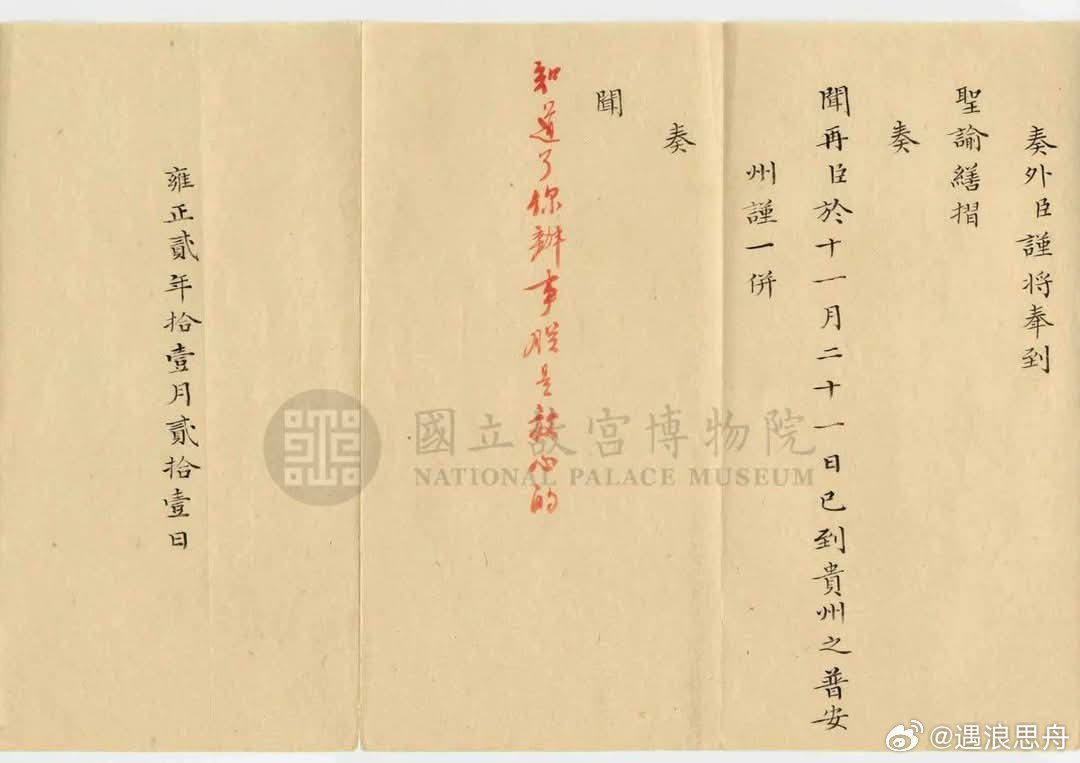 奏外臣謹将奉到
聖諭繕摺
奏
聞再臣於十一月二十一日已到貴州之普安
州謹一併
奏
聞
知道了你辦事朕是放心的
雍正貳年拾壹月貳拾壹日
國立故宮博物院
NATIONAL PALACE MUSEUM
@遇浪思舟